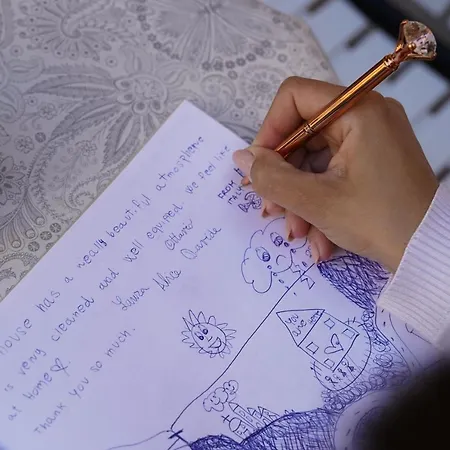 house has a really beautiful atmosphere
is very cleaned and well equiped, we feel like
at home
Thank you so much.
Luisa Alice Davide
FROM
YOU
ARE